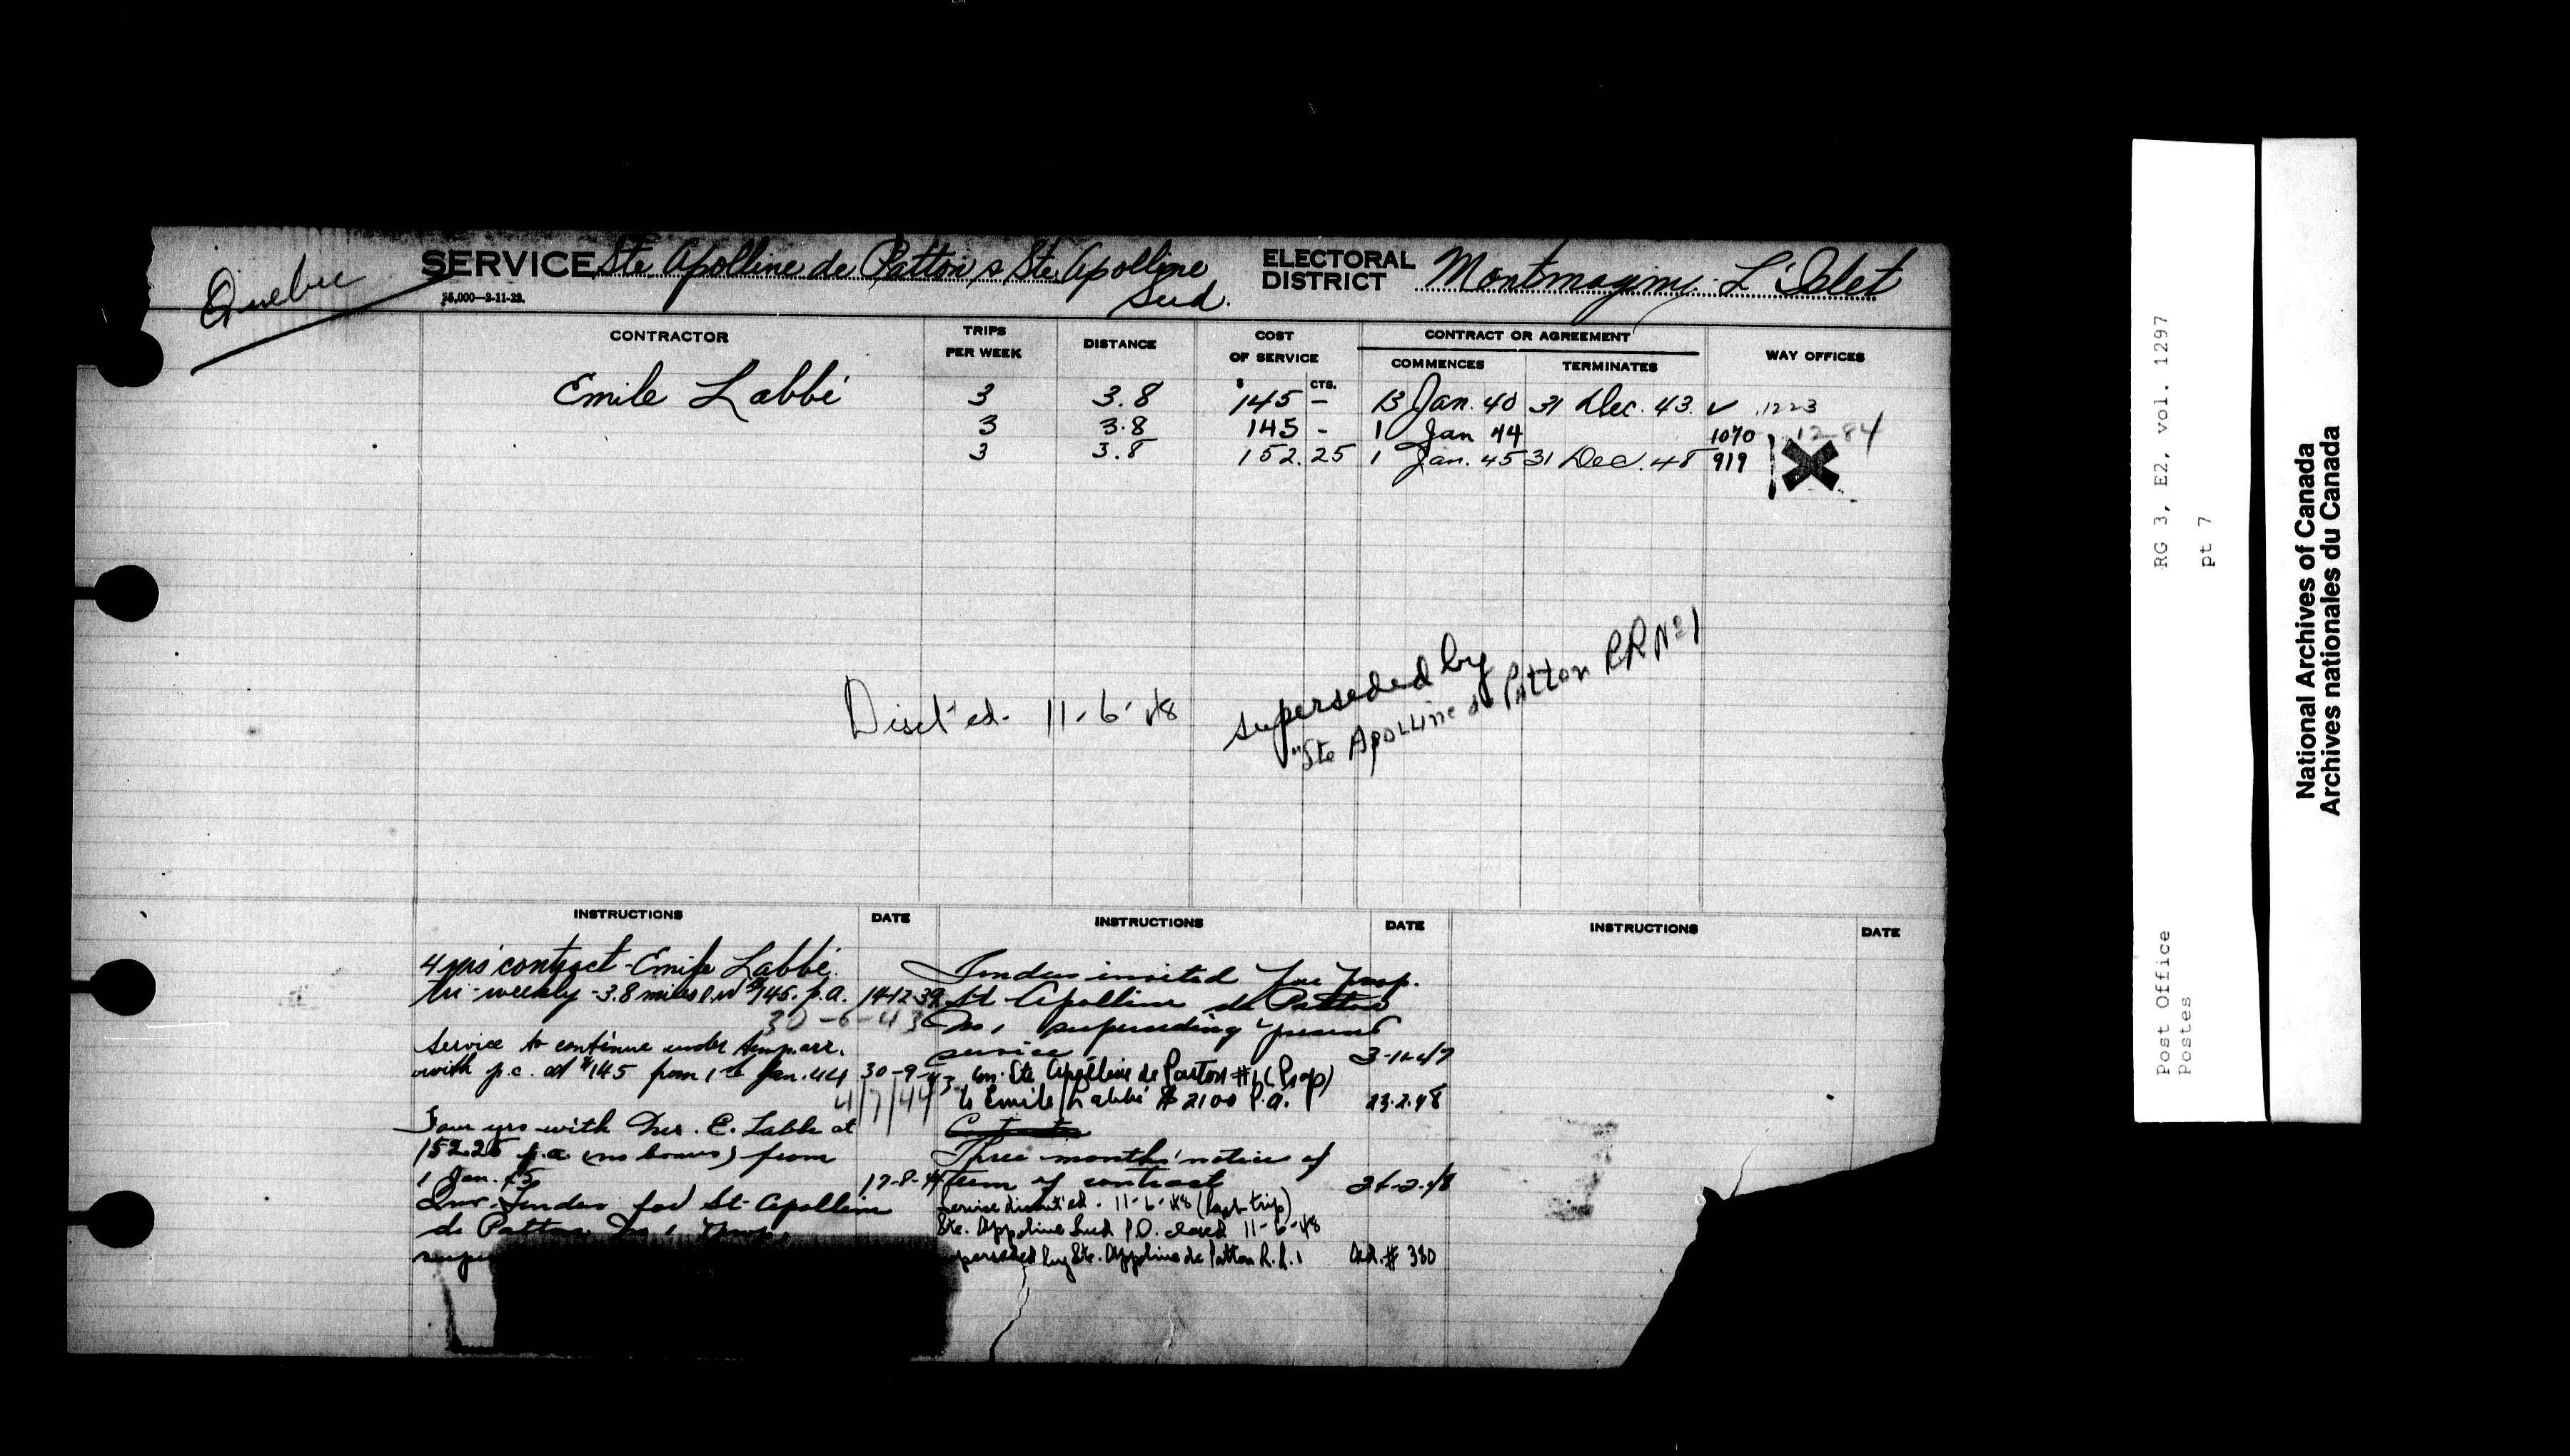 Quebec
SERVICE Ste Apolline de Patton & Ste Apolline
Sud.
ELECTORAL
DISTRICT Montmagny-L'Islet
25,000—2-11-22.
CONTRACTOR
TRIPS
PER WEEK
DISTANCE
COST
OF SERVICE
CONTRACT OR AGREEMENT
COMMENCES TERMINATES
WAY OFFICES
$ CTS.
Emile Labbé 3 3.8 145 - 13 Jan. 40 31 Dec. 43. ✓ 1223
3 3.8 145 - 1 Jan 44 1070 12-84
3 3.8 152.25 1 Jan. 45 31 Dec. 48 919
Disct'ed. 11-6-48
superseded by
"Ste Apolline de Patton RR No 1
INSTRUCTIONS DATE INSTRUCTIONS DATE INSTRUCTIONS DATE
4 yrs' contract - Emile Labbé.
tri-weekly - 3.8 miles $145. p.a. 14-12-39
30-6-43
Service to continue under temp. arr.
with p.c. at $145 from 1st Jan. 44 30-9-43
4/7/44
Four yrs with Mr. E. Labbe at
152.25 p.a. (no bonus) from
1 Jan. 45 17-8-44
Inv. Tender for St-Apolline
de Patton No 1
Tenders invited for Prop.
St Apolline de Patton
No 1 superseding present
service
Ste Apolline de Patton #1 (Prop)
to Emile Labbé $2100 p.a. 23.2.48
Three months' notice of
term of contract 26-2-48
Service discont'ed. 11-6-48 (last trip)
Ste. Appoline Sud P.O. closed 11-6-48
superseded by Ste. Appoline de Patton R.R. 1 #380
RG 3, E2, vol. 1297
pt 7
Post Office
Postes
National Archives of Canada
Archives nationales du Canada